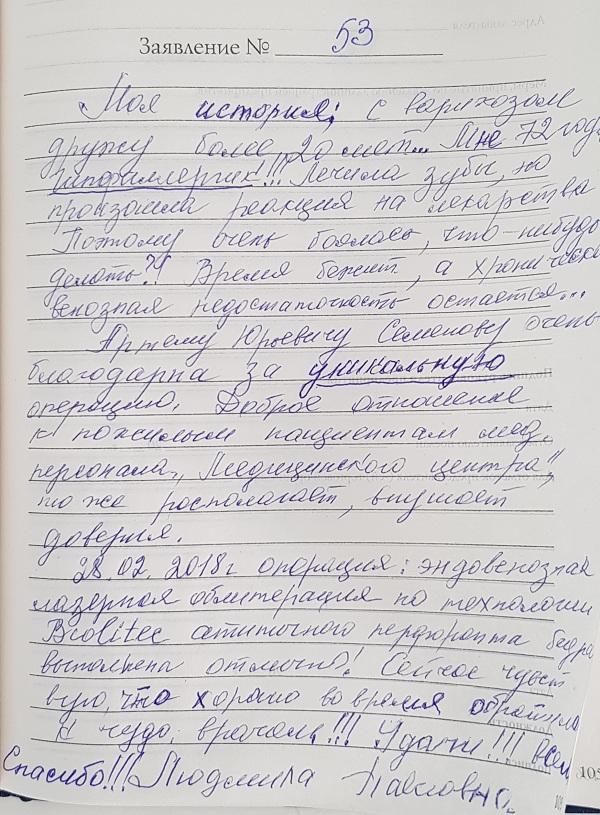 Заявление № 53
Моя история: с варикозом
дружу более 20 лет... Мне 72 года,
гипераллергик!!! Лечила зубы, но
произошла реакция на лекарства
Поэтому очень боялась, что-нибудь
делать?! Время бежит, а хроническая
венозная недостаточность остается...
Артему Юрьевичу Семенову очень
благодарна за уникальную
операцию. Доброе отношение
к пожилым пациентам мед.
персонала „Медицинского центра"
тоже располагает, внушает
доверия.
28.02.2018г операция: эндовенозная
лазерная облитерация по технологии
Biolitec атипичного перфоранта бедра
выполнена отлично! Сейчас чувст
вую, что хорошо во время обратилась
к чудо врачам!!! Удачи!!! всем
Спасибо!!! Людмила Павловна.
105